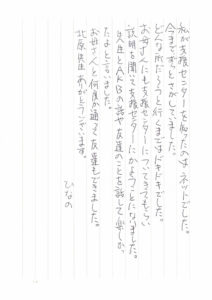 私が支援センターを知ったのはネットでした。
今までずっとさがしていました。
どんな所だろうと行くまではドキドキでした。
お母さんにも支援センターについてきてもらい
説明を聞いて支援センターにかようことになりました。
先生とAKBの話や友達のことを話して楽しかっ
たよと言いました。
お母さんと何度か通って友達もできました。
北原先生ありがとうございます。
ひなの